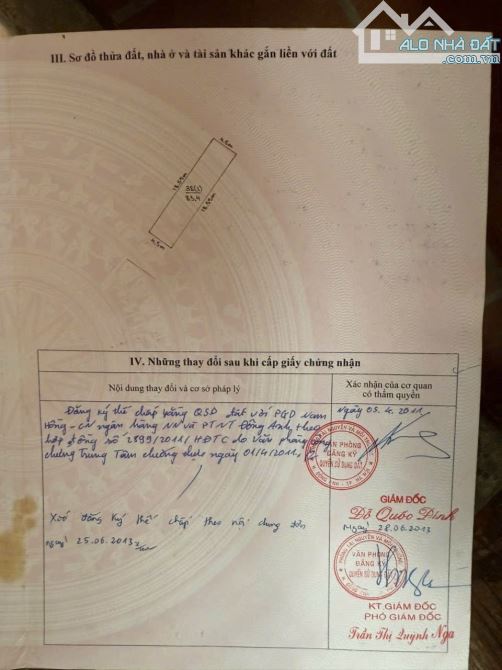 ALO NHÀ ĐẤT
.com.vn
III. Sơ đồ thửa đất, nhà ở và tài sản khác gắn liền với đất
4,5m
18,55m
38(1)
83,4
18,55m
4,5m
IV. Những thay đổi sau khi cấp giấy chứng nhận
Nội dung thay đổi và cơ sở pháp lý
Xác nhận của cơ quan
có thẩm quyền
Đăng ký thế chấp bằng QSD đất với PGD Nam
Hồng - CN ngân hàng NN và PTNT Đông Anh theo
hợp đồng số 2899/2011/HĐTC do Văn phòng công
chứng Trung Tâm chứng thực ngày 01/4/2011
Ngày 05.4.2011
VĂN PHÒNG
ĐĂNG KÝ
QUYỀN SỬ DỤNG ĐẤT
GIÁM ĐỐC
Đỗ Quốc Đính
Xoá đăng ký thế chấp theo nội dung đơn
ngày 25.06.2013
Ngày 28.06.2013
VĂN PHÒNG
ĐĂNG KÝ
QUYỀN SỬ DỤNG ĐẤT
KT.GIÁM ĐỐC
PHÓ GIÁM ĐỐC
Trần Thị Quỳnh Nga